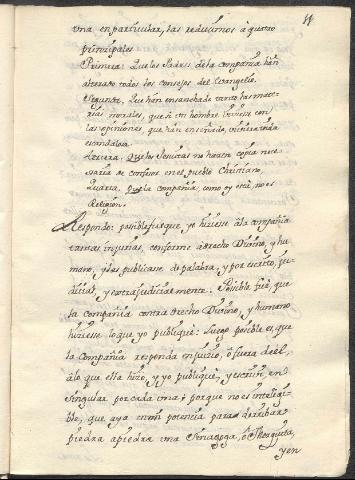 una en particular, las reducimos à quatro
principales
Primera: Que los Padres de la Compañia han
alterado todos los consejos del Evangelio.
Segunda, Que han ensanchado tanto las mate-
rias morales, que si un hombre viviesse con
las opiniones, que han enseñado, viviera vida
escandalosa.
Tercera. Que los Jesuitas no hacen copia nece-
saria de confesores en el pueblo Christiano.
Quarta, que la Compañia, como oy està, no es
Religion.
Respondo: posible fue que, yo hiciesse à la compañia
tantas injurias, conforme a drecho Divino, y hu-
mano, y las publicasse de palabra, y por escrito, ju-
dicial, y extrajudicialmente. Posible fuè, que
la compañia contra drecho Divino, y humano
hiciesse lo que yo publiquè: Luego posible es, que
la Compañia responda en juicio, ò fuera de èl,
à lo que ella hizo, y yo publiquè, y escrivì en
singular por cada una; porque no es inteligi-
ble, que aya en mi potencia para derribar
piedra a piedra una Sinagoga, ò Mezquita,
y en